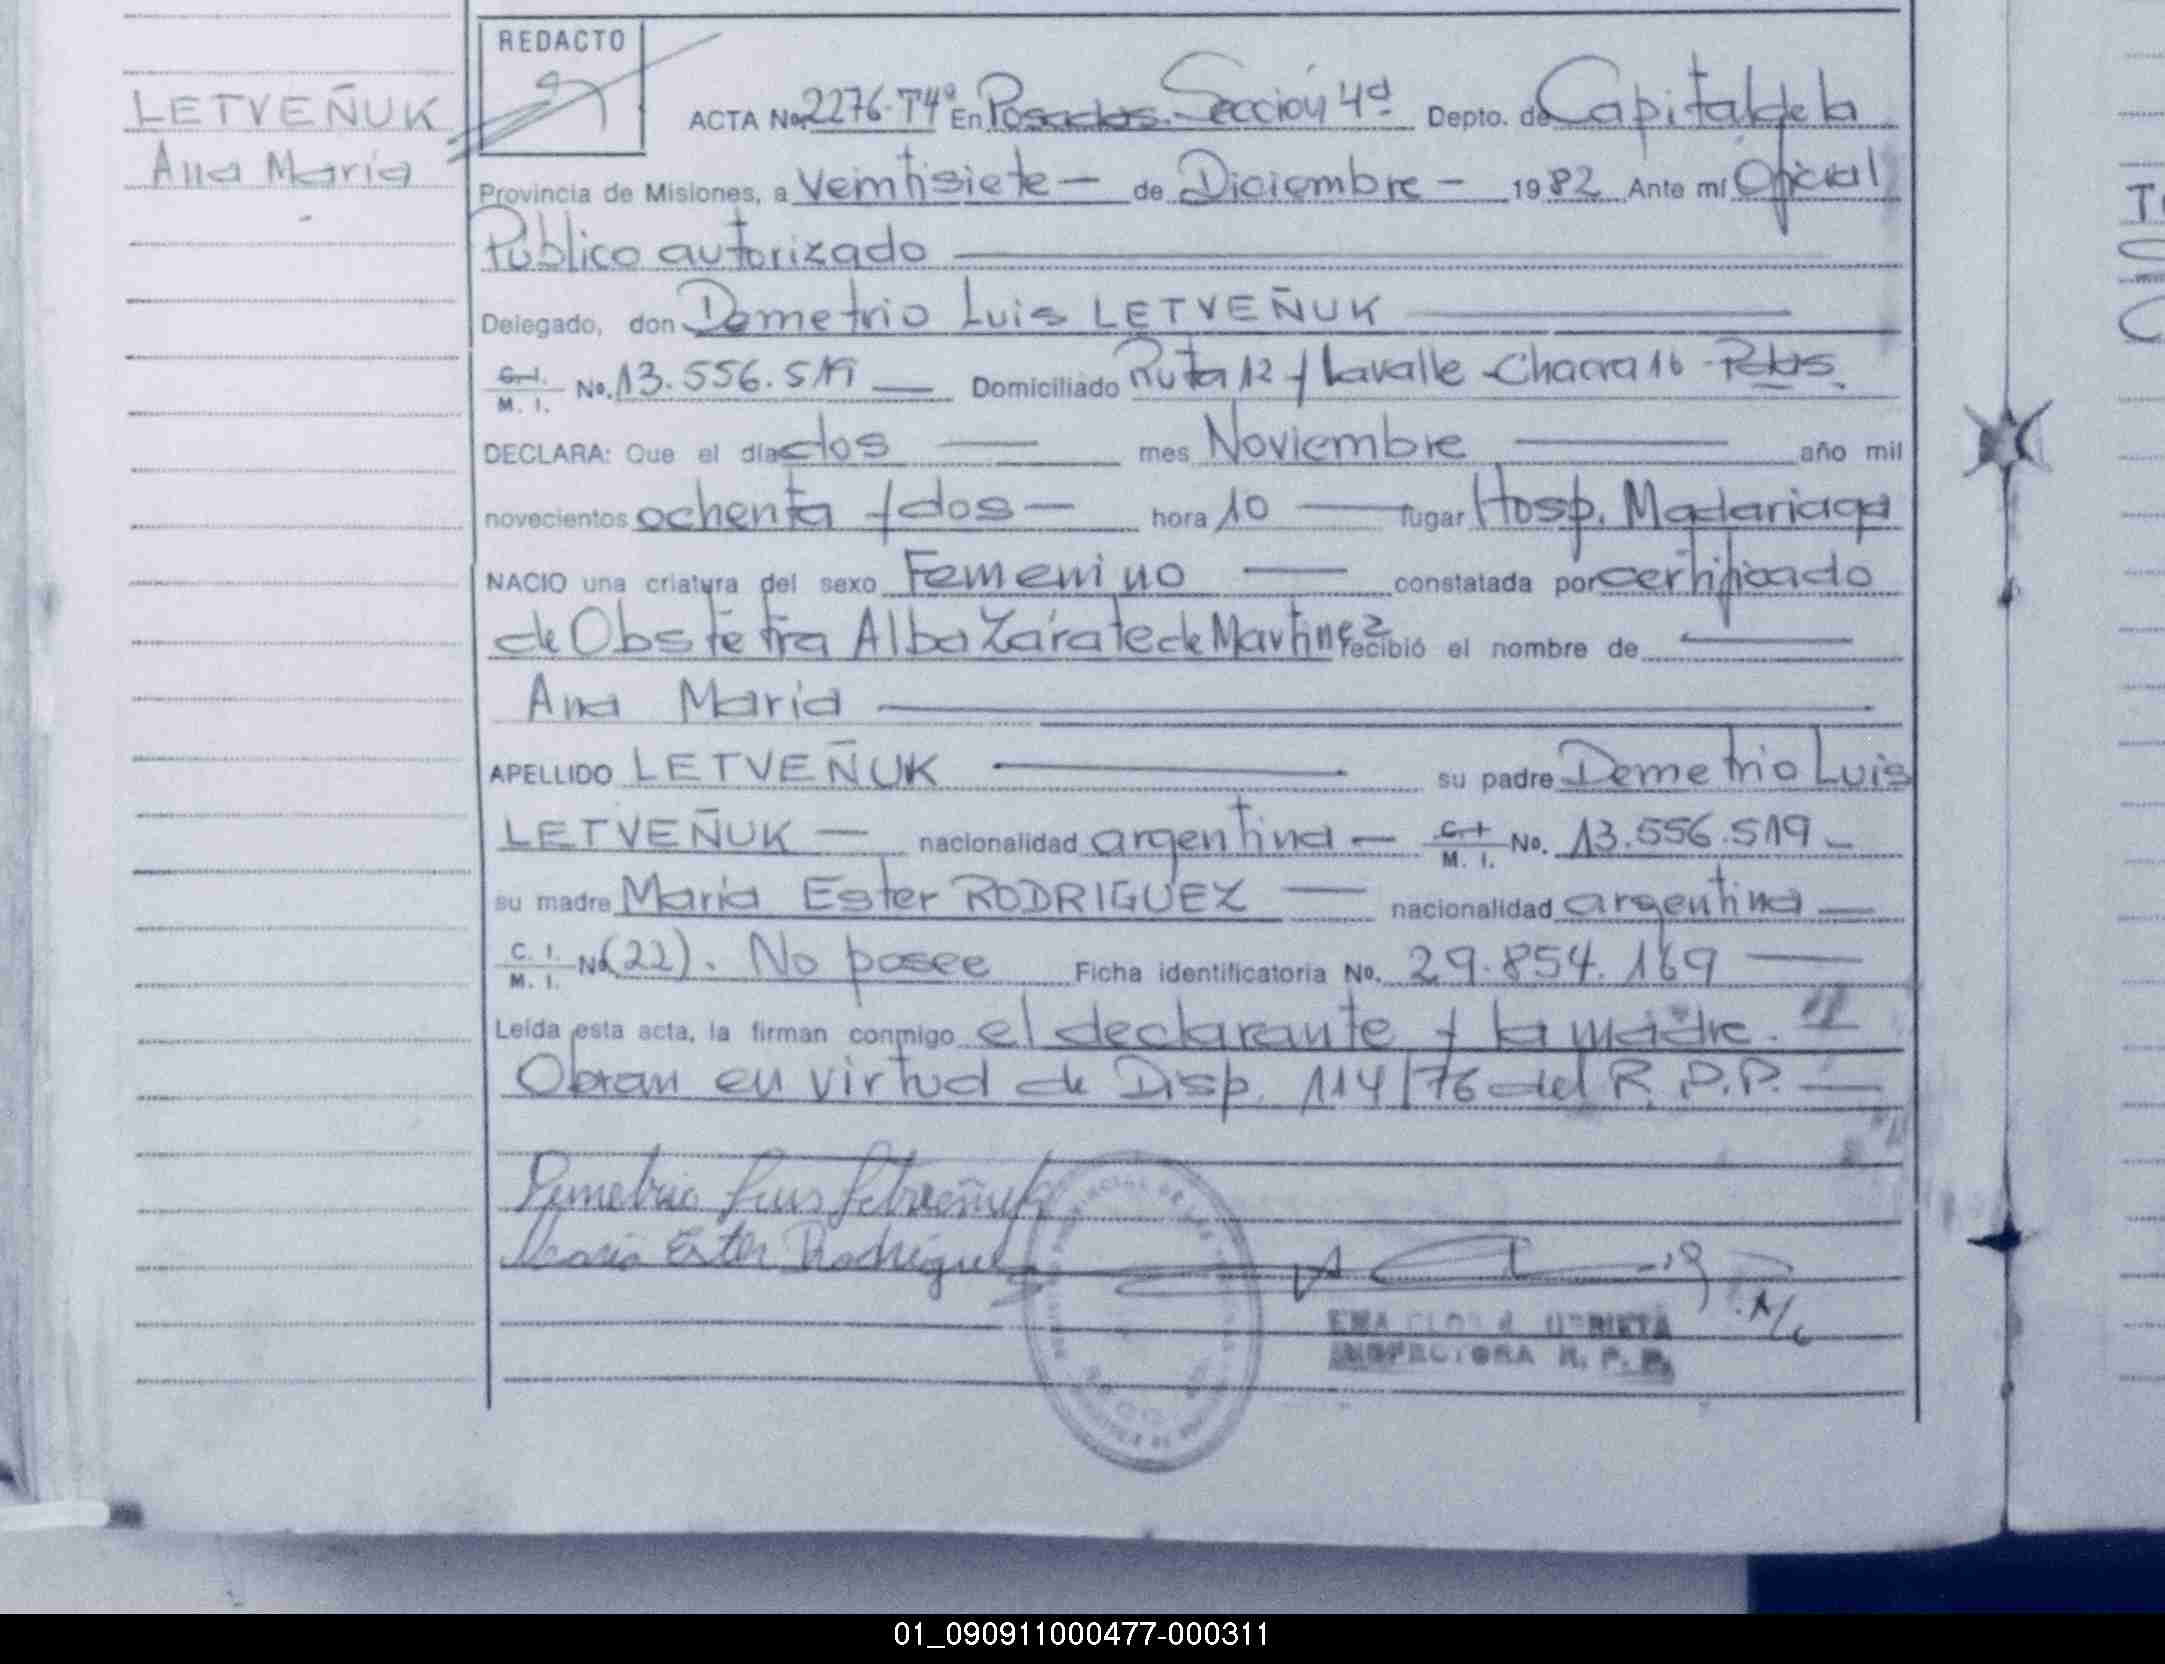 LETVEÑUK
Ana María
REDACTO
ACTA No. 2276-T4º En Posadas. Sección 4ª Depto. de Capital de la
Provincia de Misiones, a Veintisiete — de Diciembre — 1982 Ante mí Oficial
Público autorizado
Delegado, don Demetrio Luis LETVEÑUK
C. I. M. I. No. 13.556.519 — Domiciliado Ruta 12 y Lavalle - Chacra 16 - Pdas.
DECLARA: Que el día dos — mes Noviembre — año mil
novecientos ochenta y dos — hora 10 — lugar Hosp. Madariaga
NACIO una criatura del sexo Femenino — constatada por certificado
de Obstetra Alba Zárate de Martinez recibió el nombre de —
Ana María —
APELLIDO LETVEÑUK — su padre Demetrio Luis
LETVEÑUK — nacionalidad argentina — C. I. M. I. No. 13.556.519 —
su madre María Ester RODRIGUEZ — nacionalidad argentina —
C. I. M. I. No (22). No posee Ficha identificatoria No. 29.854.169 —
Leída esta acta, la firman conmigo el declarante y la madre.
Obran en virtud de Disp. 114/76 del R. P. P. —
Demetrio Luis Letveñuk
María Ester Rodriguez
INSPECTORA R. P. P.
T
C
01_090911000477-000311